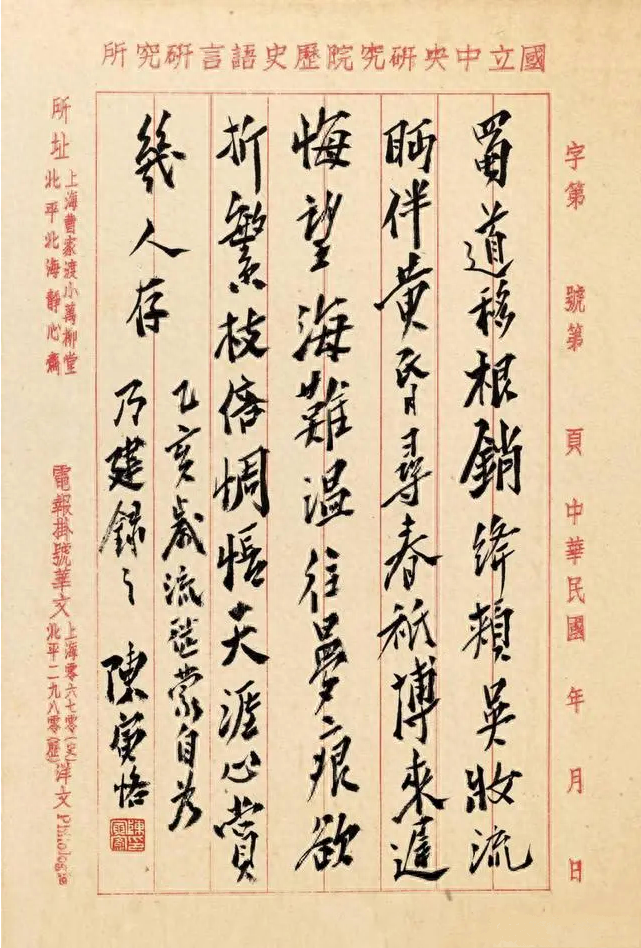 國立中央研究院歷史語言研究所
字第 號第 頁 中華民國 年 月 日
蜀道移根銷絳頰吳妝流
眄伴黃昏尋春祗博來遲
悔望海難溫往夢痕欲
折繁枝倍惆悵天涯心賞
幾人存
乙亥歲流徙蒙自為
乃建錄之 陳寅恪
所址
上海曹家渡小萬柳堂
北平北海靜心齋
電報掛號華文
上海零六七零(史)
北平二九八零(歷)
洋文